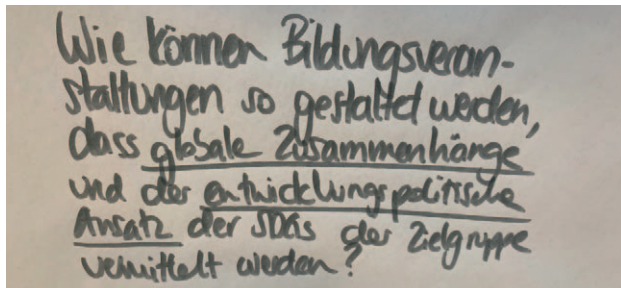 Wie können Bildungsveran-
staltungen so gestaltet werden,
dass globale Zusammenhänge
und der entwicklungspolitische
Ansatz der SDGs der Zielgruppe
vermittelt werden?